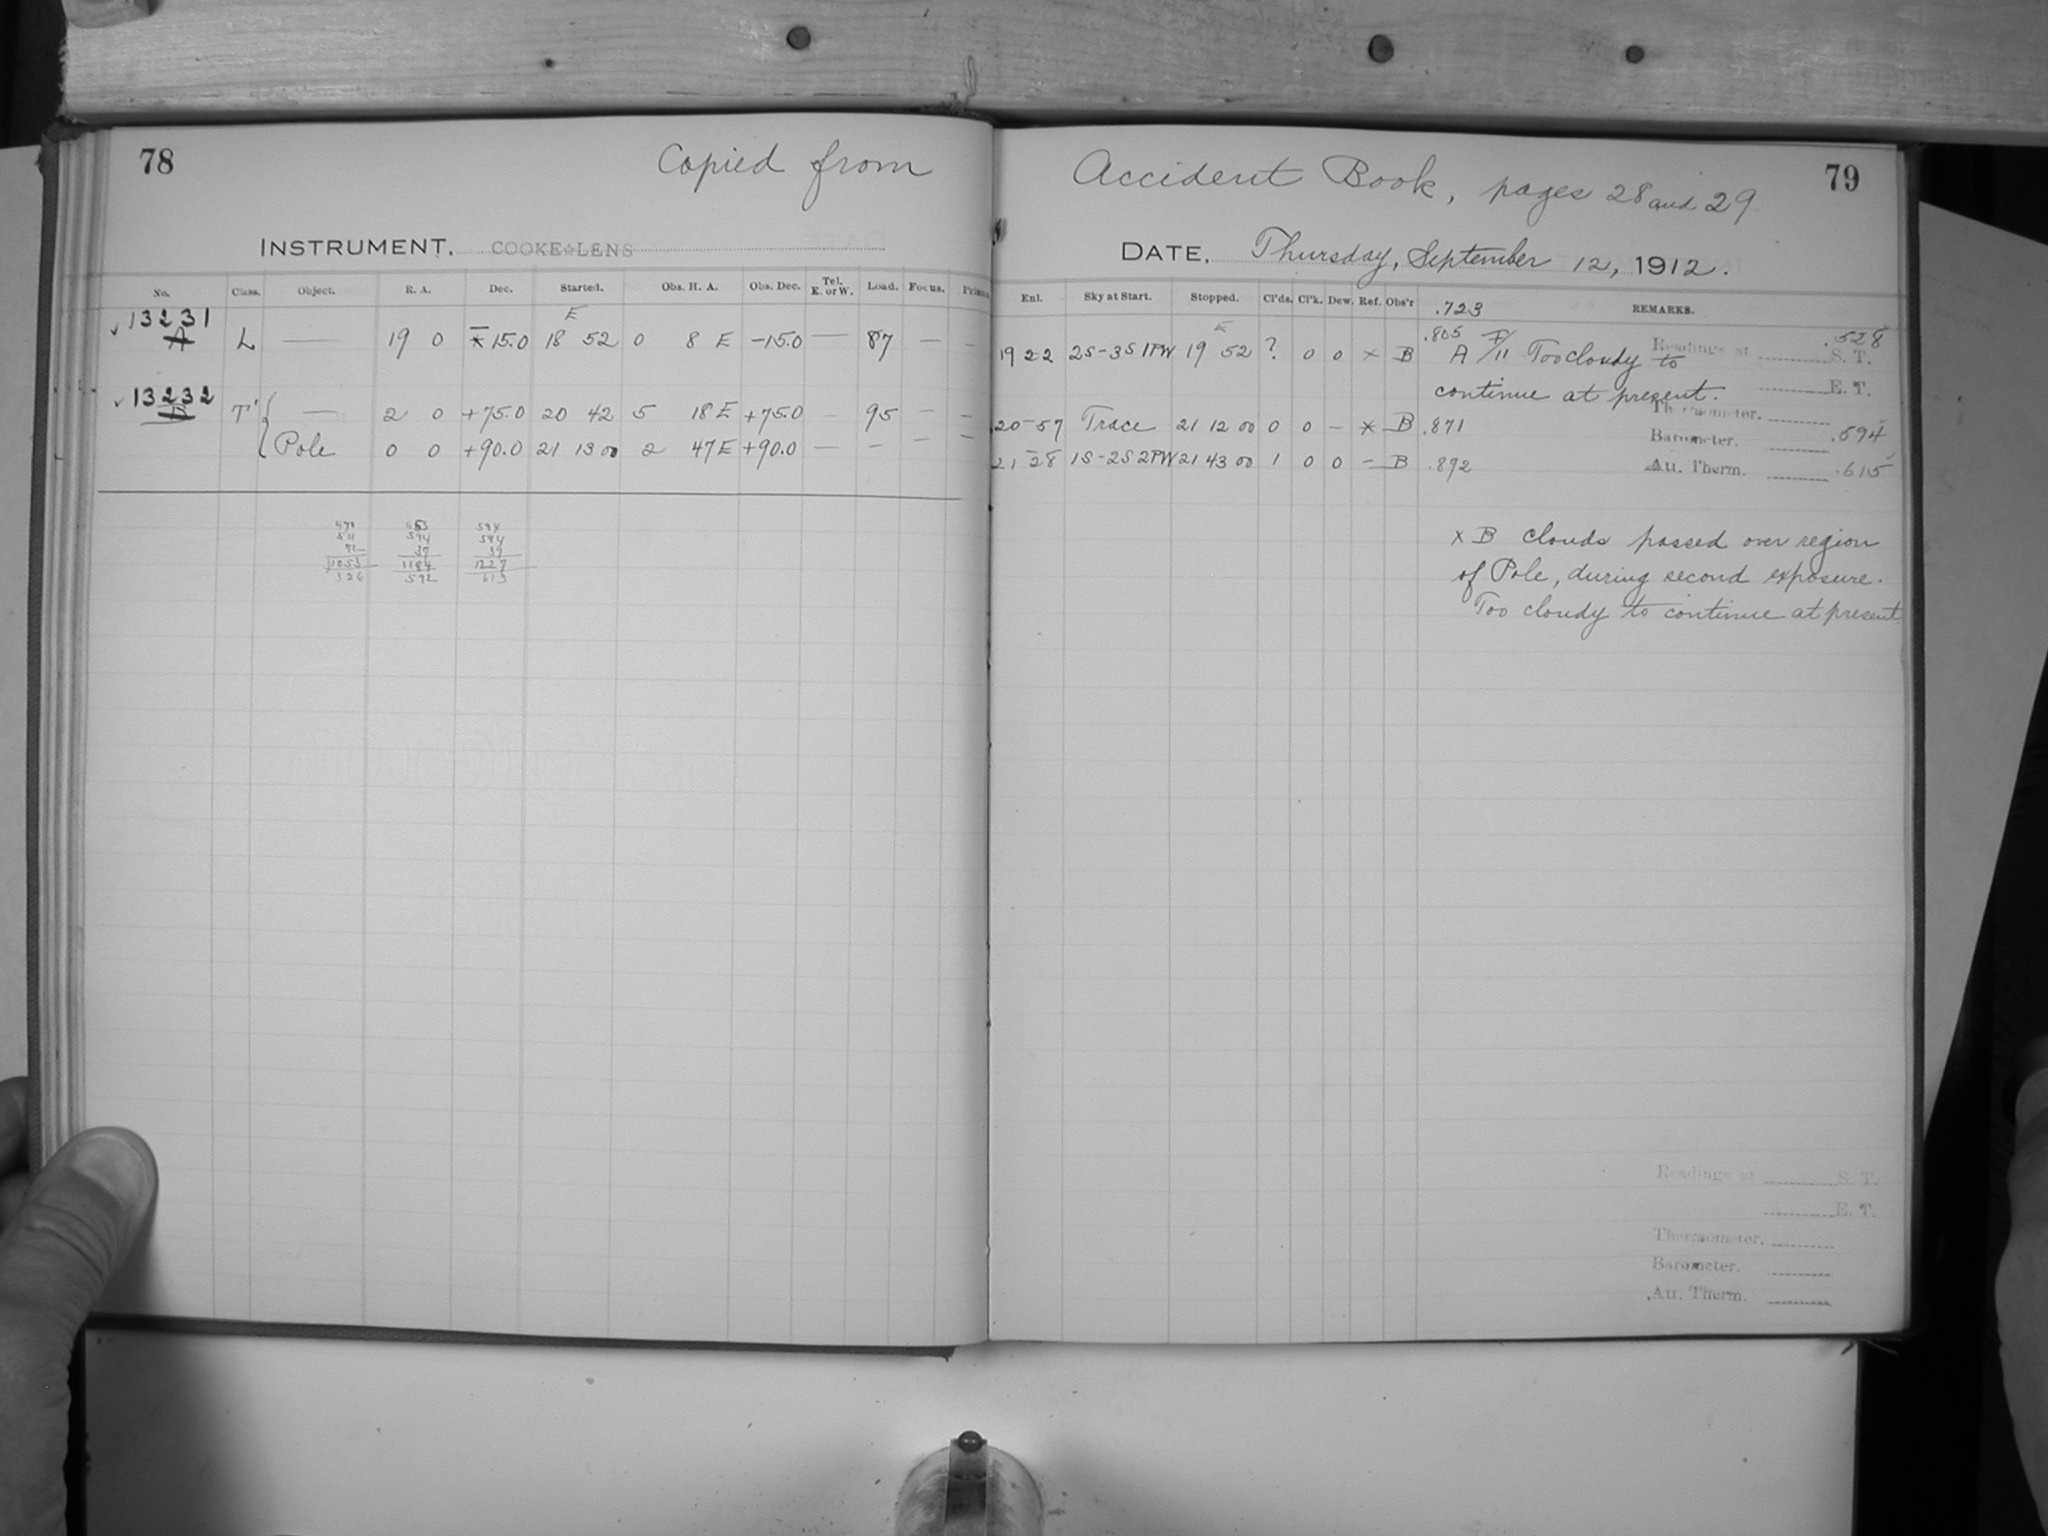 78
Copied from
INSTRUMENT. COOKE LENS
No. Class. Object. R. A. Dec. Started. Obs. H. A. Obs. Dec. Tel. E. or W. Load. Focus. Prism.
E
13231
A L — 19 0 -15.0 18 52 0 8 E -15.0 — 87 — —
13232
B T' — 2 0 +75.0 20 42 5 18 E +75.0 — 95 — —
Pole 0 0 +90.0 21 13 00 2 47 E +90.0 — — — —
594
594
37
1184
592
Accident Book, pages 28 and 29
79
DATE. Thursday, September 12, 1912.
Enl. Sky at Start. Stopped. Cl'ds. Cl'k. Dew. Ref. Obs'r REMARKS.
.723
E
.805 .528
19 22 2S-3S 1PW 19 52 ? 0 0 x B A Too cloudy to
Readings at S. T.
continue at present.
E. T.
Thermometer.
20-57 Trace 21 12 00 0 0 - * B .871
Barometer. .594
21-28 1S-2S 2PW 21 43 00 1 0 0 - B .892
Att. Therm. .615
x B clouds passed over region
of Pole, during second exposure.
Too cloudy to continue at present
Readings at S. T.
E. T.
Thermometer.
Barometer.
Att. Therm.